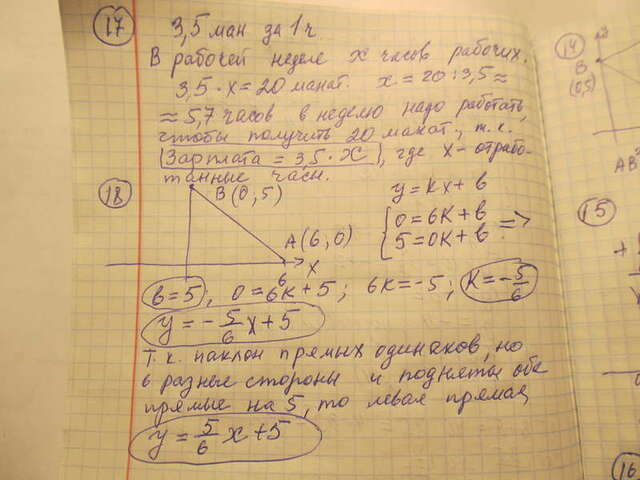 17 3,5 ман за 1 ч.
В рабочей неделе x часов рабочих.
3,5 · x = 20 манат. x = 20 : 3,5 ≈
≈ 5,7 часов в неделю надо работать,
чтобы получить 20 манат, т.к.
Зарплата = 3,5 · x, где x - отрабо-
танные часы.
18
B (0,5)
A (6,0)
6
x
y = kx + b
{ 0 = 6k + b
5 = 0k + b =>
b = 5, 0 = 6k + 5; 6k = -5; k = -5/6
y = -5/6 x + 5
Т.к. наклон прямых одинаков, но
в разные стороны и подняты обе
прямые на 5, то левая прямая
y = 5/6 x + 5
14
B
(0,5)
AB
15
16